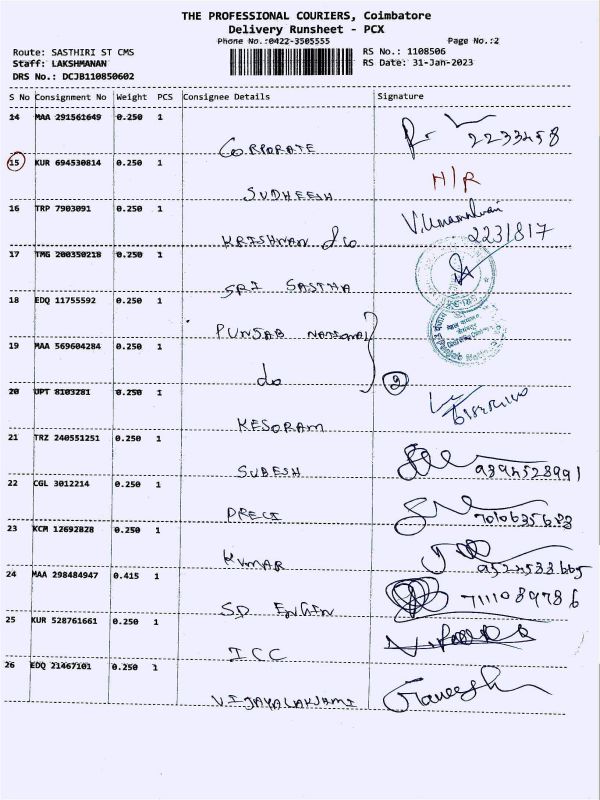 THE PROFESSIONAL COURIERS, Coimbatore
Delivery Runsheet - PCX
Phone No.:0422-3505555 Page No.:2
Route: SASTHIRI ST CMS RS No.: 1108506
Staff: LAKSHMANAN RS Date: 31-Jan-2023
DRS No.: DCJB110850602
S No Consignment No Weight PCS Consignee Details Signature
14 MAA 291561649 0.250 1
CORPORATE 2233458
15 KUR 694530814 0.250 1
SUDHEESH N/R
16 TRP 7903091 0.250 1
KRISHNAN & Co 2231817
17 TMG 200350218 0.250 1
SRI SASTHA
18 EDQ 11755592 0.250 1
PUNJAB NATIONAL
19 MAA 569604284 0.250 1
do 2
20 UPT 8103281 0.250 1
KESORAM
21 TRZ 240551251 0.250 1
SUBESH 9394528991
22 CGL 3012214 0.250 1
PRECI
23 KCM 12692828 0.250 1
KUMAR
24 MAA 298484947 0.415 1
SP ENGIN 7111089786
25 KUR 528761661 0.250 1
ICC
26 EDQ 21467101 0.250 1
VIJAYALAKJAMI Ganesh